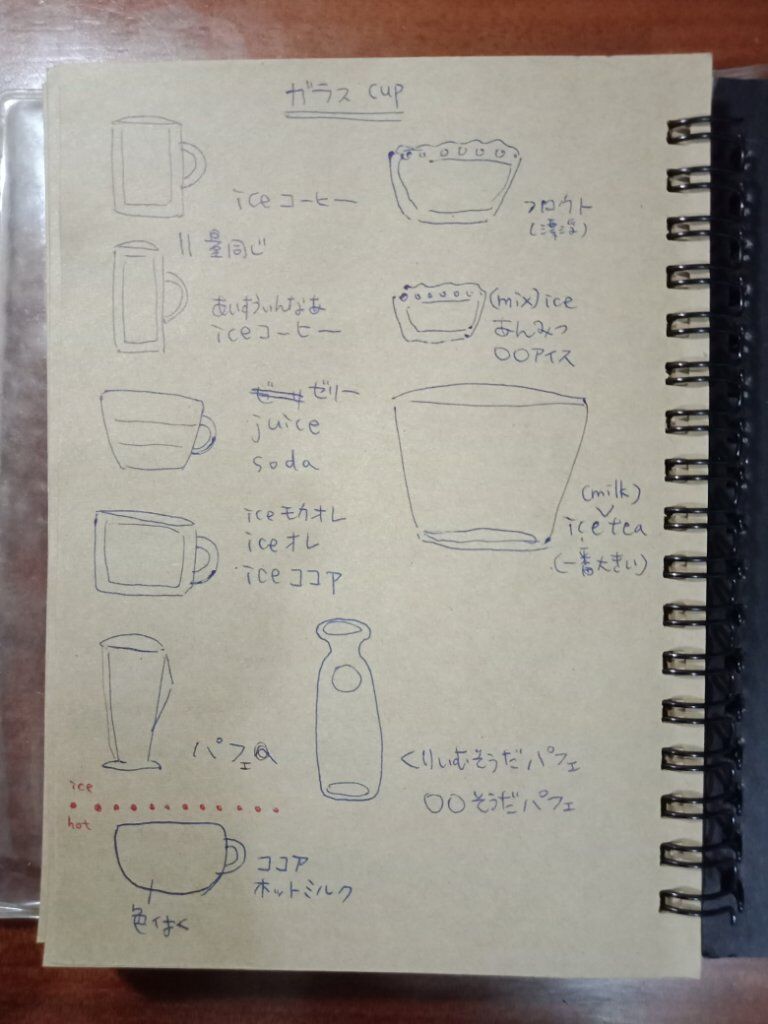 ガラス cup
ice コーヒー
量同じ
あいすういんなあ
ice コーヒー
ゼリー
juice
soda
ice モカオレ
ice オレ
ice ココア
パフェ
フロウト
(漂浮)
(mix) ice
あんみつ
〇〇アイス
(milk)
ice tea
(一番大きい)
くりいむそうだパフェ
〇〇そうだパフェ
ice
hot
ココア
ホットミルク